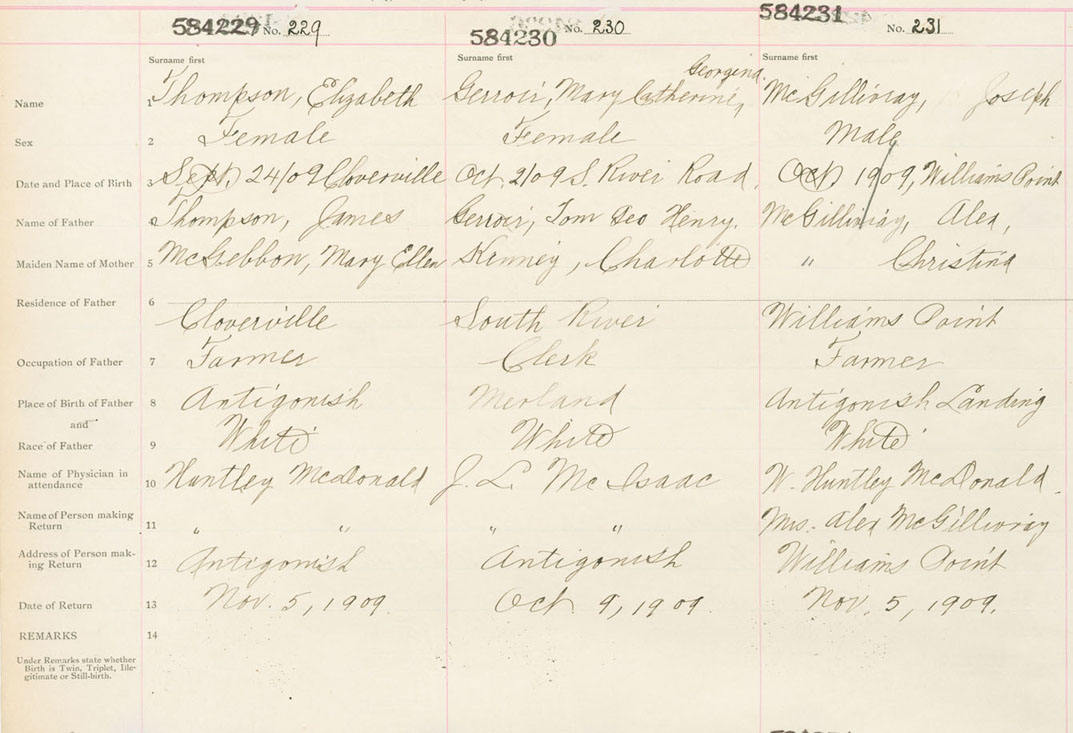 584229 No. 229 584230 No. 230 584231 No. 231
Surname first Surname first Surname first
Georgina
Name 1 Thompson, Elizabeth Gerroir, Mary Catherine, McGillivray, Joseph
Sex 2 Female Female Male
Date and Place of Birth 3 Sept. 24/09 Cloverville Oct. 2/09 S. River Road. Oct. 1909, Williams Point
Name of Father 4 Thompson, James Gerroir, Tom Geo Henry. McGillivray, Alex,
Maiden Name of Mother 5 McGebbon, Mary Ellen Kenney, Charlotte " Christina
Residence of Father 6
Cloverville South River Williams Point
Occupation of Father 7 Farmer Clerk Farmer
Place of Birth of Father 8 Antigonish Merland Antigonish Landing
and
Race of Father 9 White White White
Name of Physician in
attendance 10 Huntley McDonald J. L. McIsaac W. Huntley McDonald.
Name of Person making
Return 11 " " " " Mrs. Alex McGillivray
Address of Person mak-
ing Return 12 Antigonish Antigonish Williams Point
Date of Return 13 Nov. 5, 1909. Oct 9, 1909. Nov. 5, 1909.
REMARKS 14
Under Remarks state whether
Birth is Twin, Triplet, Ille-
gitimate or Still-birth.